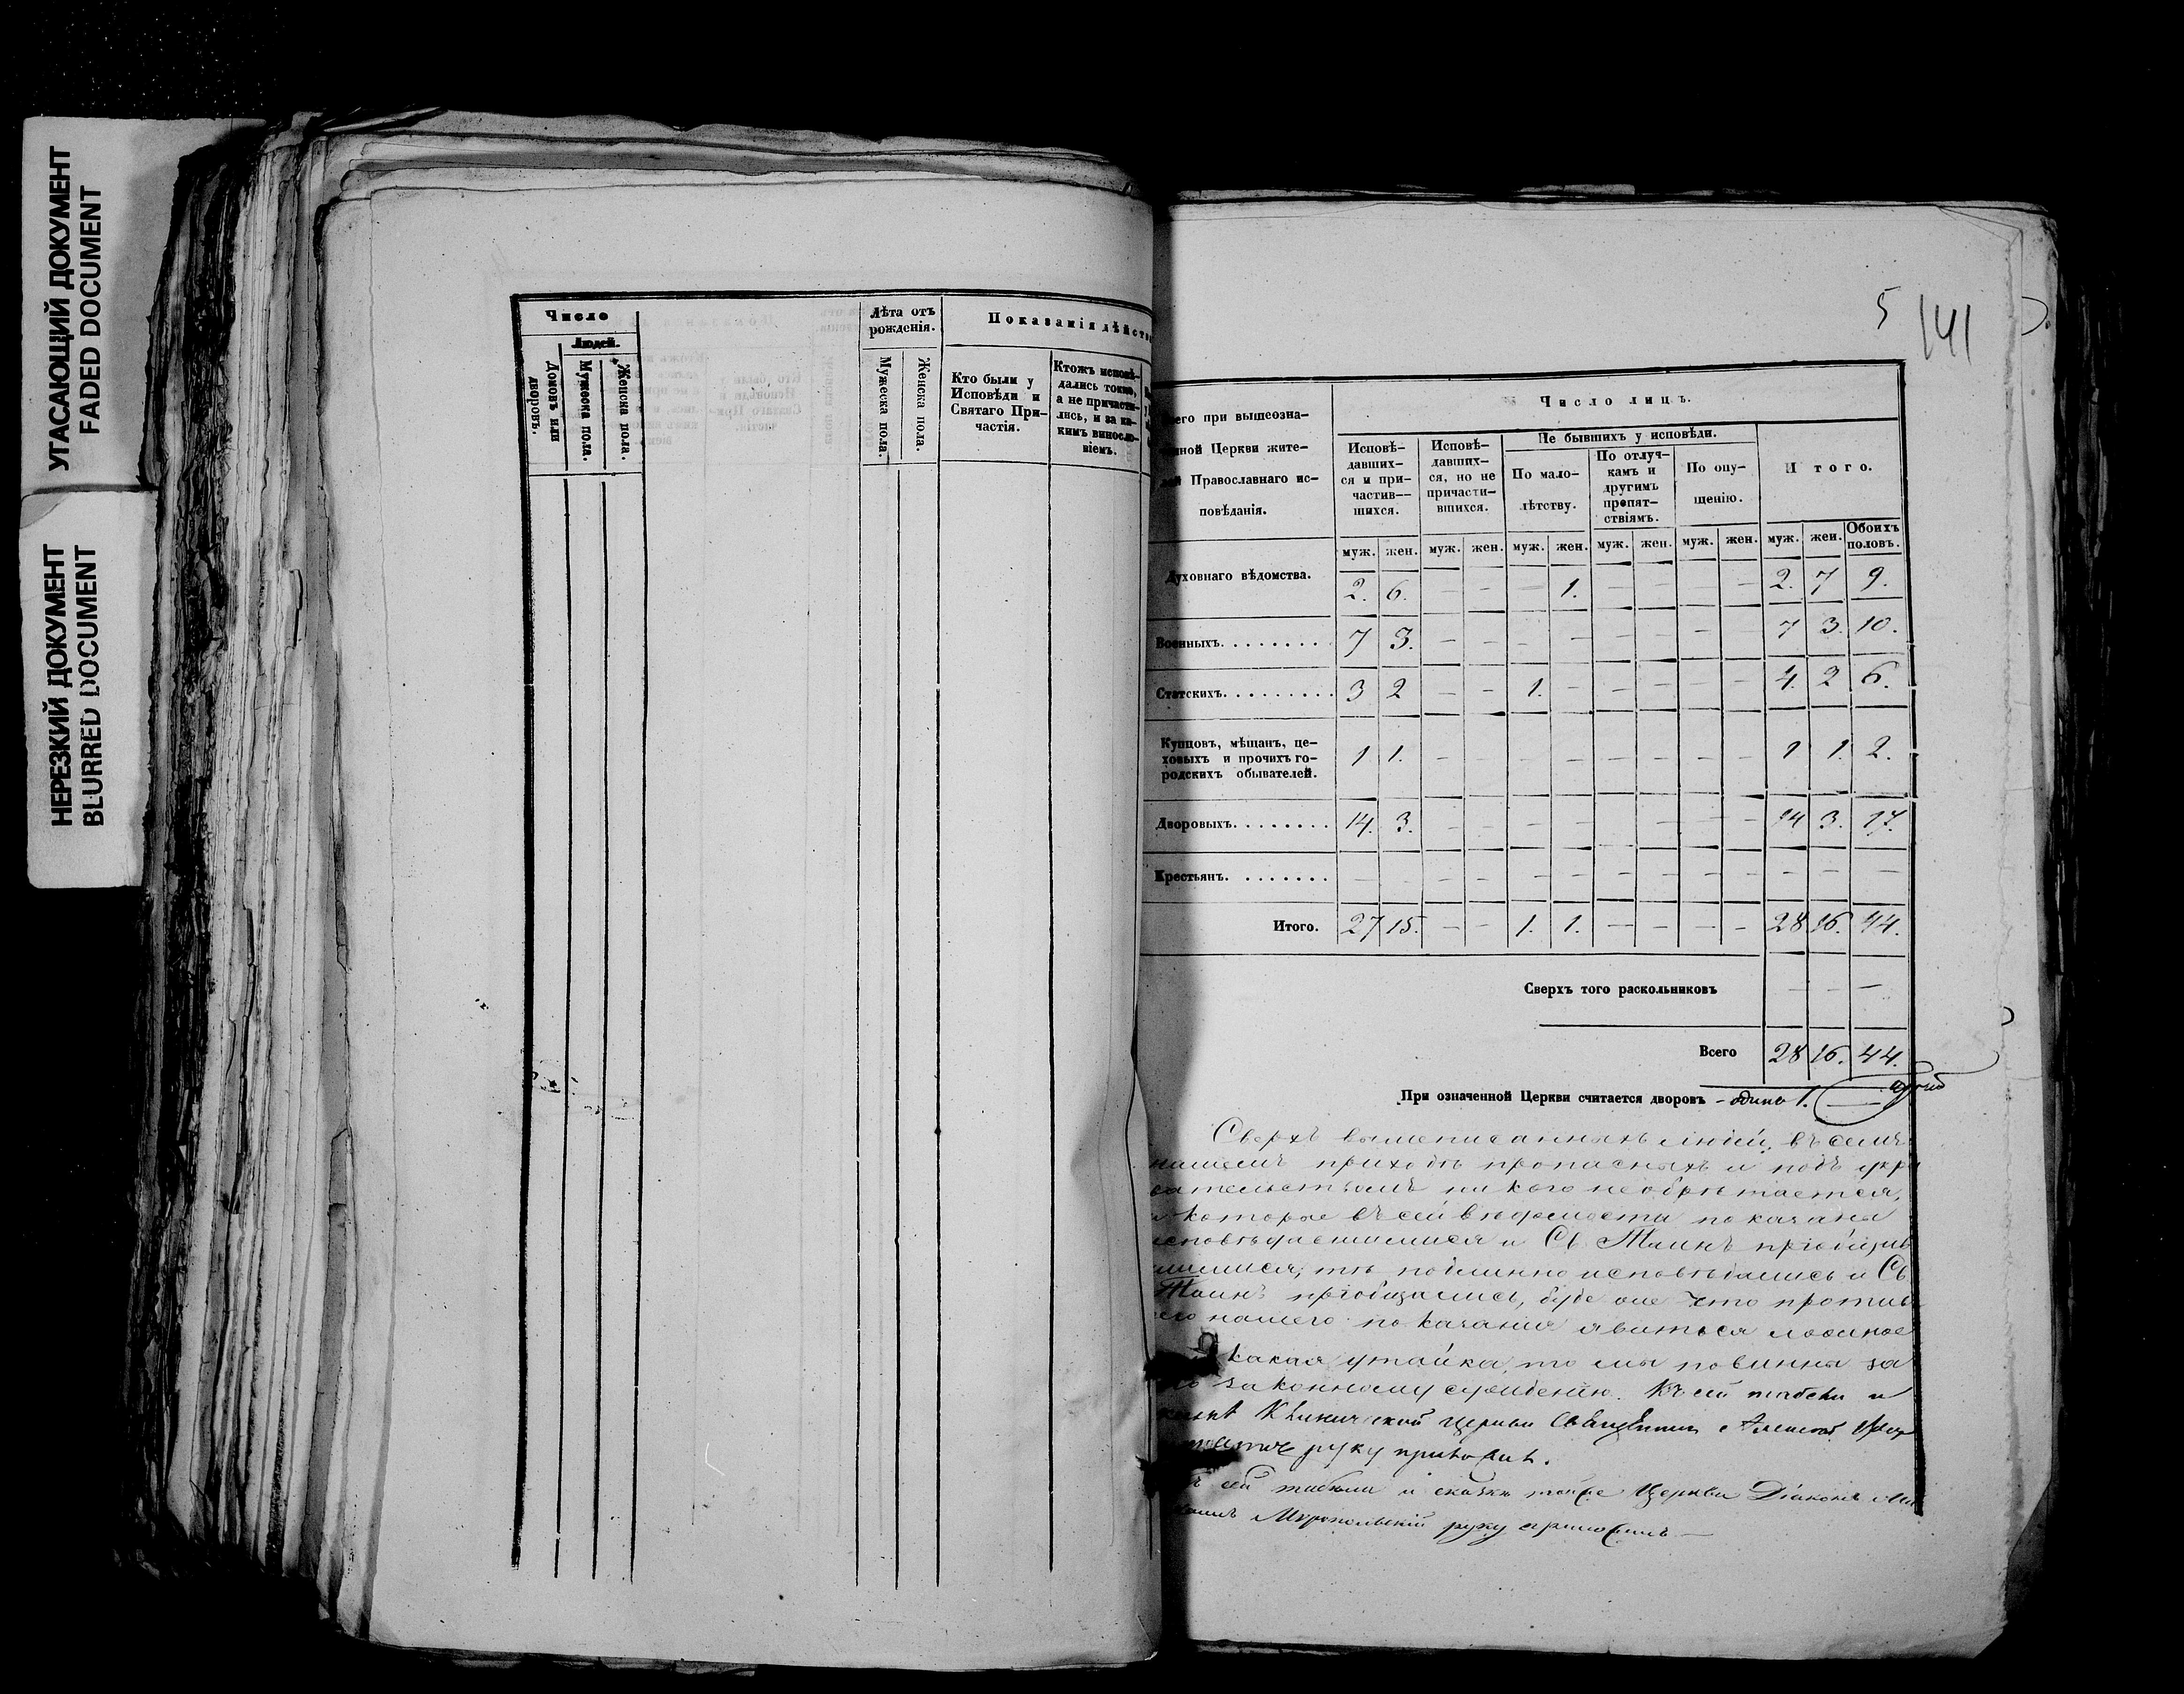 УГАСАЮЩИЙ ДОКУМЕНТ
FADED DOCUMENT
НЕРЕЗКИЙ ДОКУМЕНТ
BLURRED DOCUMENT
Число
Людей.
Домовъ или дворовъ.
Мужеска пола.
Женска пола.
Лѣта отъ
рожденія.
Мужеска пола.
Женска пола.
Показанія дѣйст
Кто были у
Исповѣди и
Святаго При-
частія.
Ктожъ исповѣ-
дались токмо,
а не причасти-
лись, и за ка-
кимъ виносло-
віемъ.
5 141
его при вышеозна-
ной Церкви жите-
лей Православнаго ис-
повѣданія.
Число лицъ.
Исповѣ-
давших-
ся и при-
частив-
шихся.
Исповѣ-
давших-
ся, но не
причасти-
вшихся.
Не бывшихъ у исповѣди.
По мало-
лѣтству.
По отлуч-
камъ и
другимъ
препят-
ствіямъ.
По опу-
щенію.
Итого.
муж. жен. муж. жен. муж. жен. муж. жен. муж. жен. муж. жен. Обоихъ половъ.
Духовнаго вѣдомства. 2. 6. — — — 1. — — — — 2. 7 9.
Военныхъ. . . . . . . . 7 3. — — — — — — — — 7 3. 10.
Статскихъ. . . . . . . . . 3 2 — — 1. — — — — — 4. 2 6.
Купцовъ, мѣщанъ, це-
ховыхъ и прочихъ го-
родскихъ обывателей. 1 1. — — — — — — — — 1 1. 2.
Дворовыхъ. . . . . . . . 14. 3. — — — — — — — — 14 3. 17.
Крестьянъ. . . . . . . . — — — — — — — — — — — — —
Итого. 27 15. — — 1. 1. — — — — 28 16. 44.
Сверхъ того раскольниковъ — — —
Всего 28 16. 44.
При означенной Церкви считается дворовъ – одинъ 1.
Сверхъ вышеписанныхъ людей, въ семъ
нашемъ приходѣ прописныхъ и подъ укры
вательствомъ никого не обрѣтается,
которые въ сей вѣдомости показаны
исповѣдавшимися и Св. Таинъ пріобщив
шимися, тѣ подлинно исповѣдались и Св.
Таинъ пріобщались, буде же что против
его нашего показанія явиться ложное
какая утайка, то мы повинны за
законному сужденію. Къ сей табели и
церкви Священникъ Алексей
руку приложилъ.
сей табели и сказкѣ тойже Церкви Діаконъ
Миропольскій руку приложилъ —